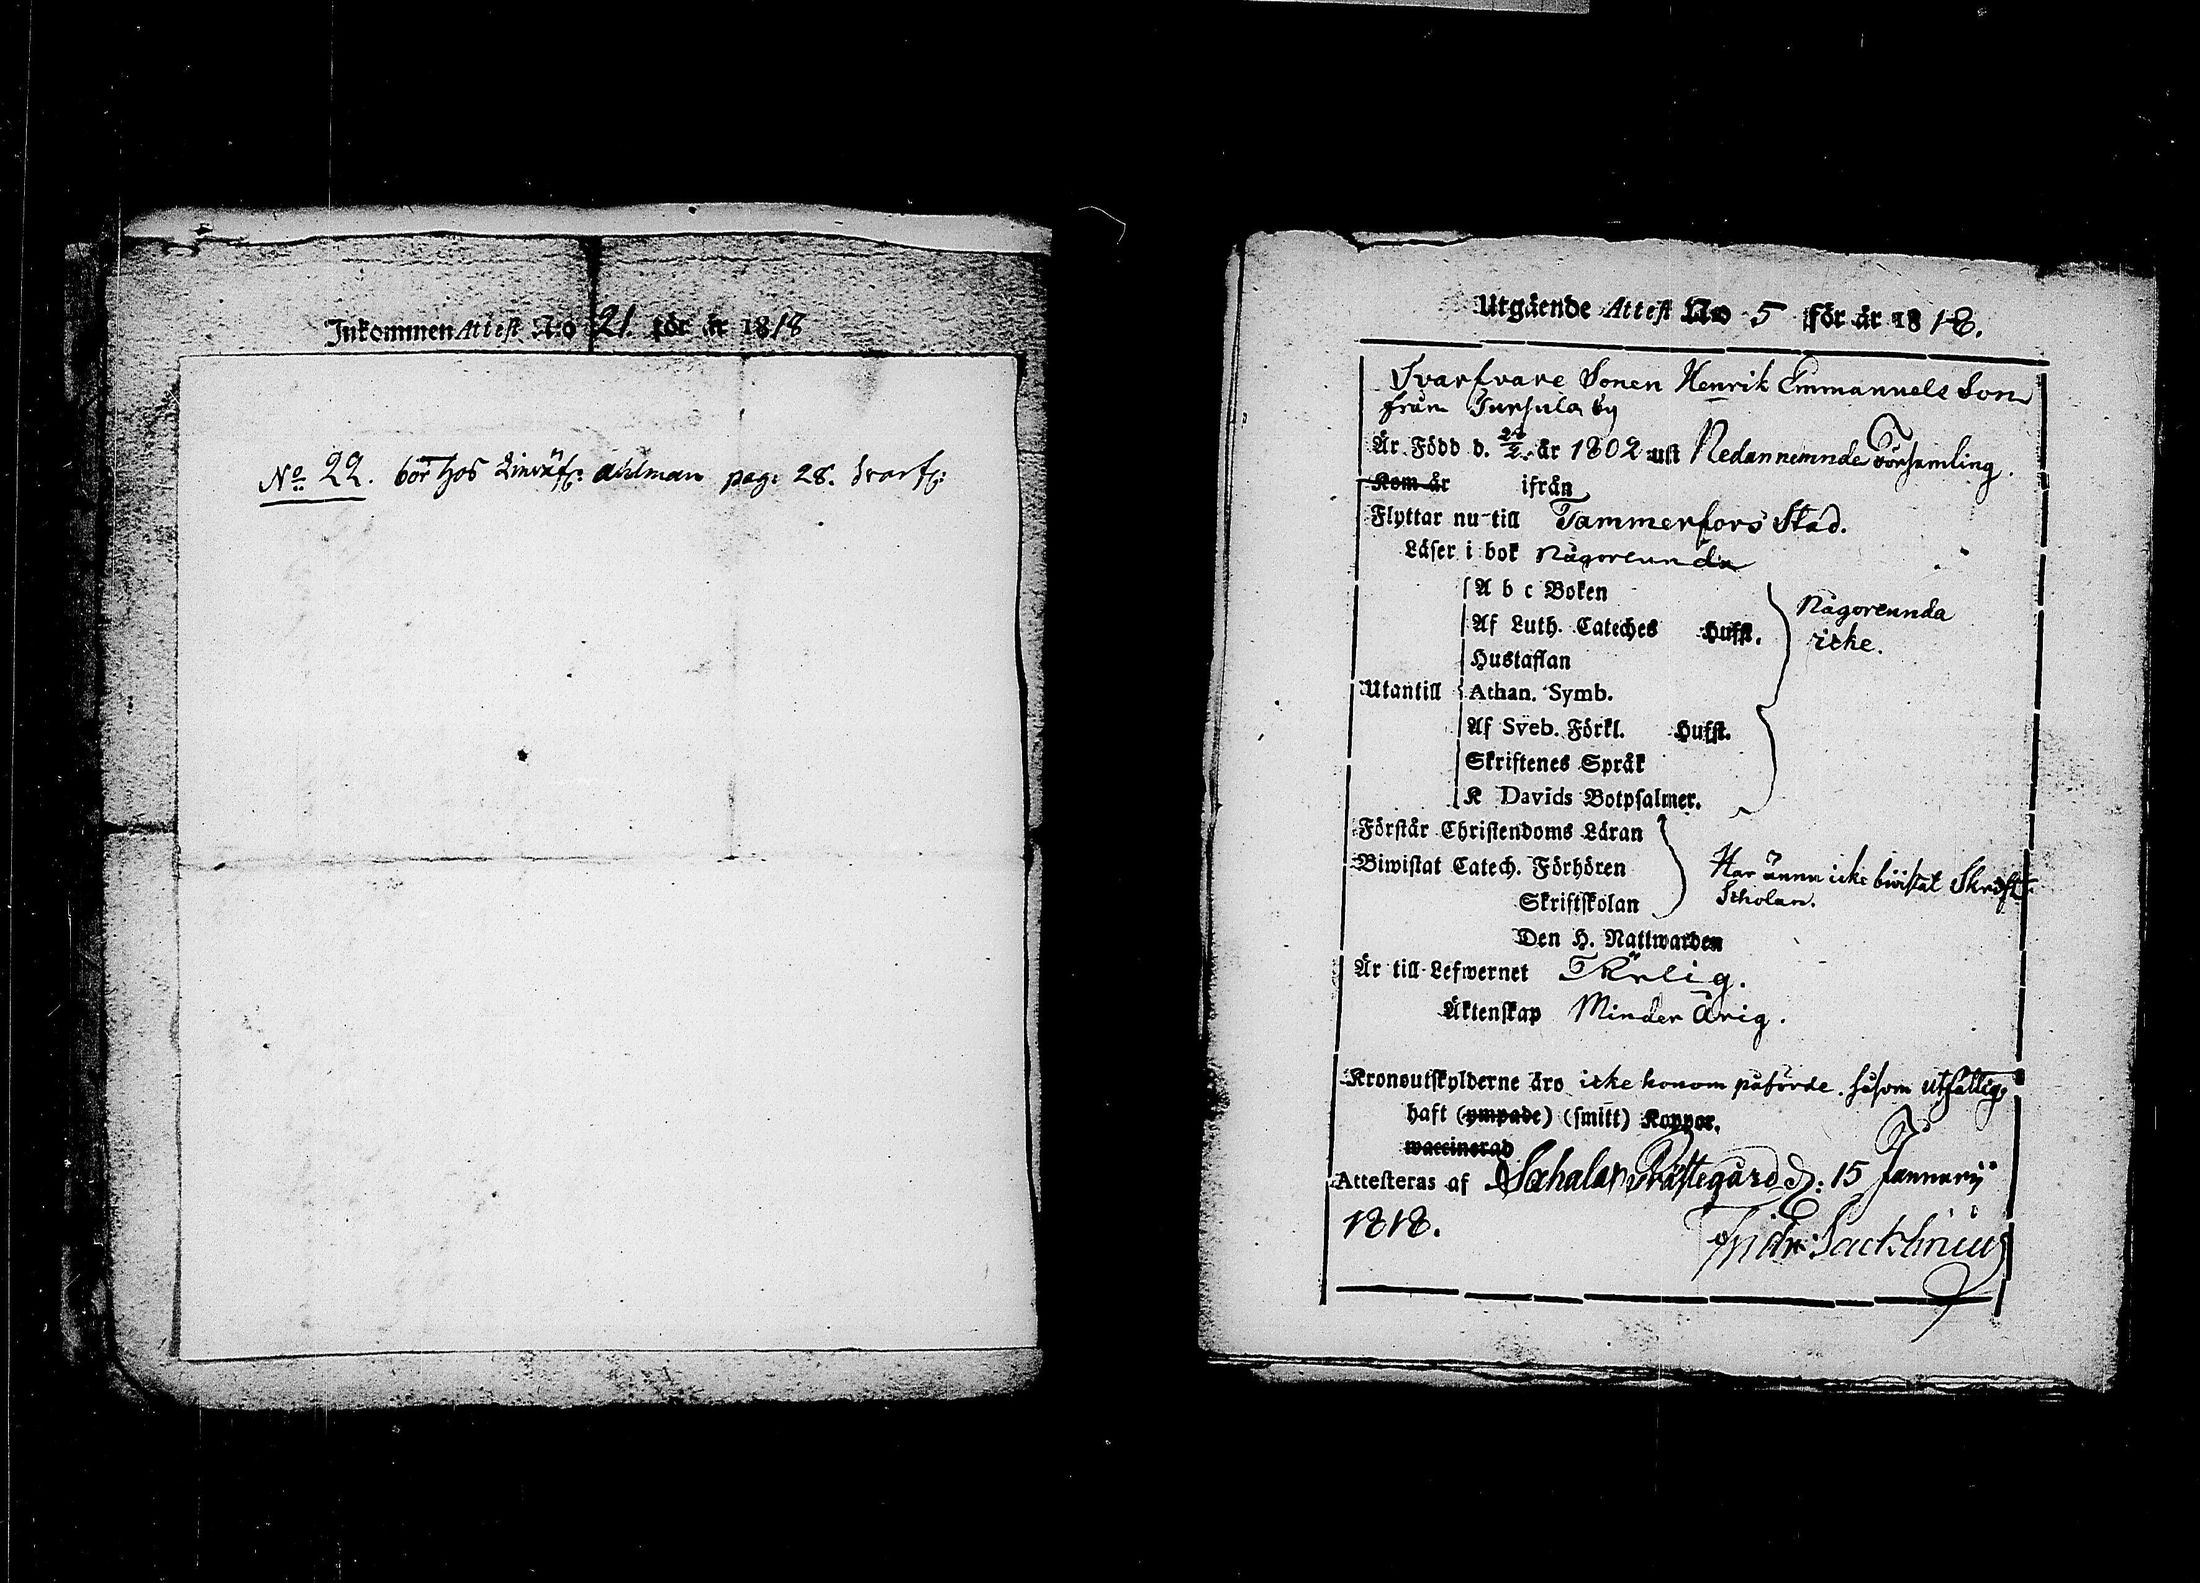 Inkommen Attest N:o 21. för år 1818
No 22. bor hos Ahlman pag. 28.
Utgående Attest No 5 för år 1818.
Svarfvare Sonen Henrik Emmanuels Son
från by
Är Född d. år 1802 uti Nedannemnde Församling.
Kom år ifrån
Flyttar nu till Tammerfors Stad.
Läser i bok Någorlunda
A b c Boken
Någorlunda
Af Luth. Cateches Hufst.
icke.
Hustaflan
Utantill Athan. Symb.
Af Sveb. Förkl. Hufst.
Skriftenes Språk
K Davids Botpsalmer.
Förstår Christendoms Läran
Biwistat Catech. Förhören
Har ännu icke biwistat Skrift
Scholan.
Skriftskolan
Den H. Nattwarden
Är till Lefwernet Ärlig.
Äktenskap Minder årig.
Kronoutskylderne äro icke honom påförde. såsom utfattig
haft (ympade) (smitt) Koppor.
waccinerad
Attesteras af Sahalax Prästegård d. 15 Januarij
1818.